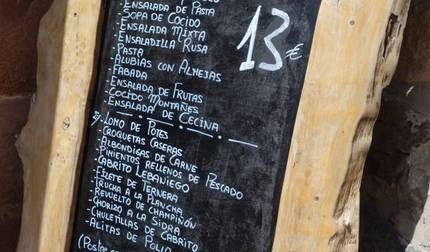 -Ensalada de Pasta
-Sopa de Cocido
-Ensalada Mixta
-Ensaladilla Rusa
-Pasta
-Alubias con Almejas
-Fabada
-Ensalada de Frutas
-Cocido Montañes
-Ensalada de Cecina
13€
-Lomo de
-Croquetas Caseras
-Albóndigas de Carne
-Pimientos Rellenos de Pescado
-Cabrito Lebaniego
-Filete de Ternera
-Trucha a la Plancha
-Revuelto de Champiñón
-Chorizo a la Sidra
-Chuletillas de Cabrito
-Alitas de Pollo